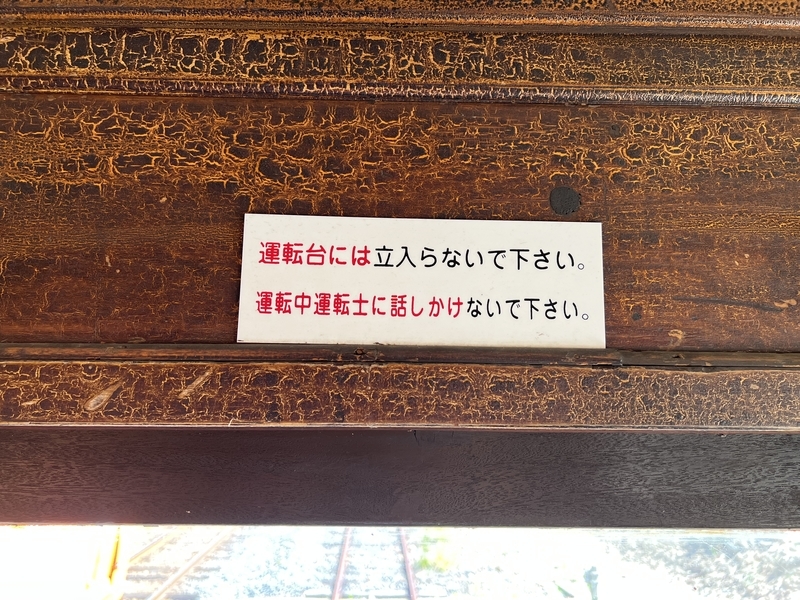 運転台には立入らないで下さい。
運転中運転士に話しかけないで下さい。